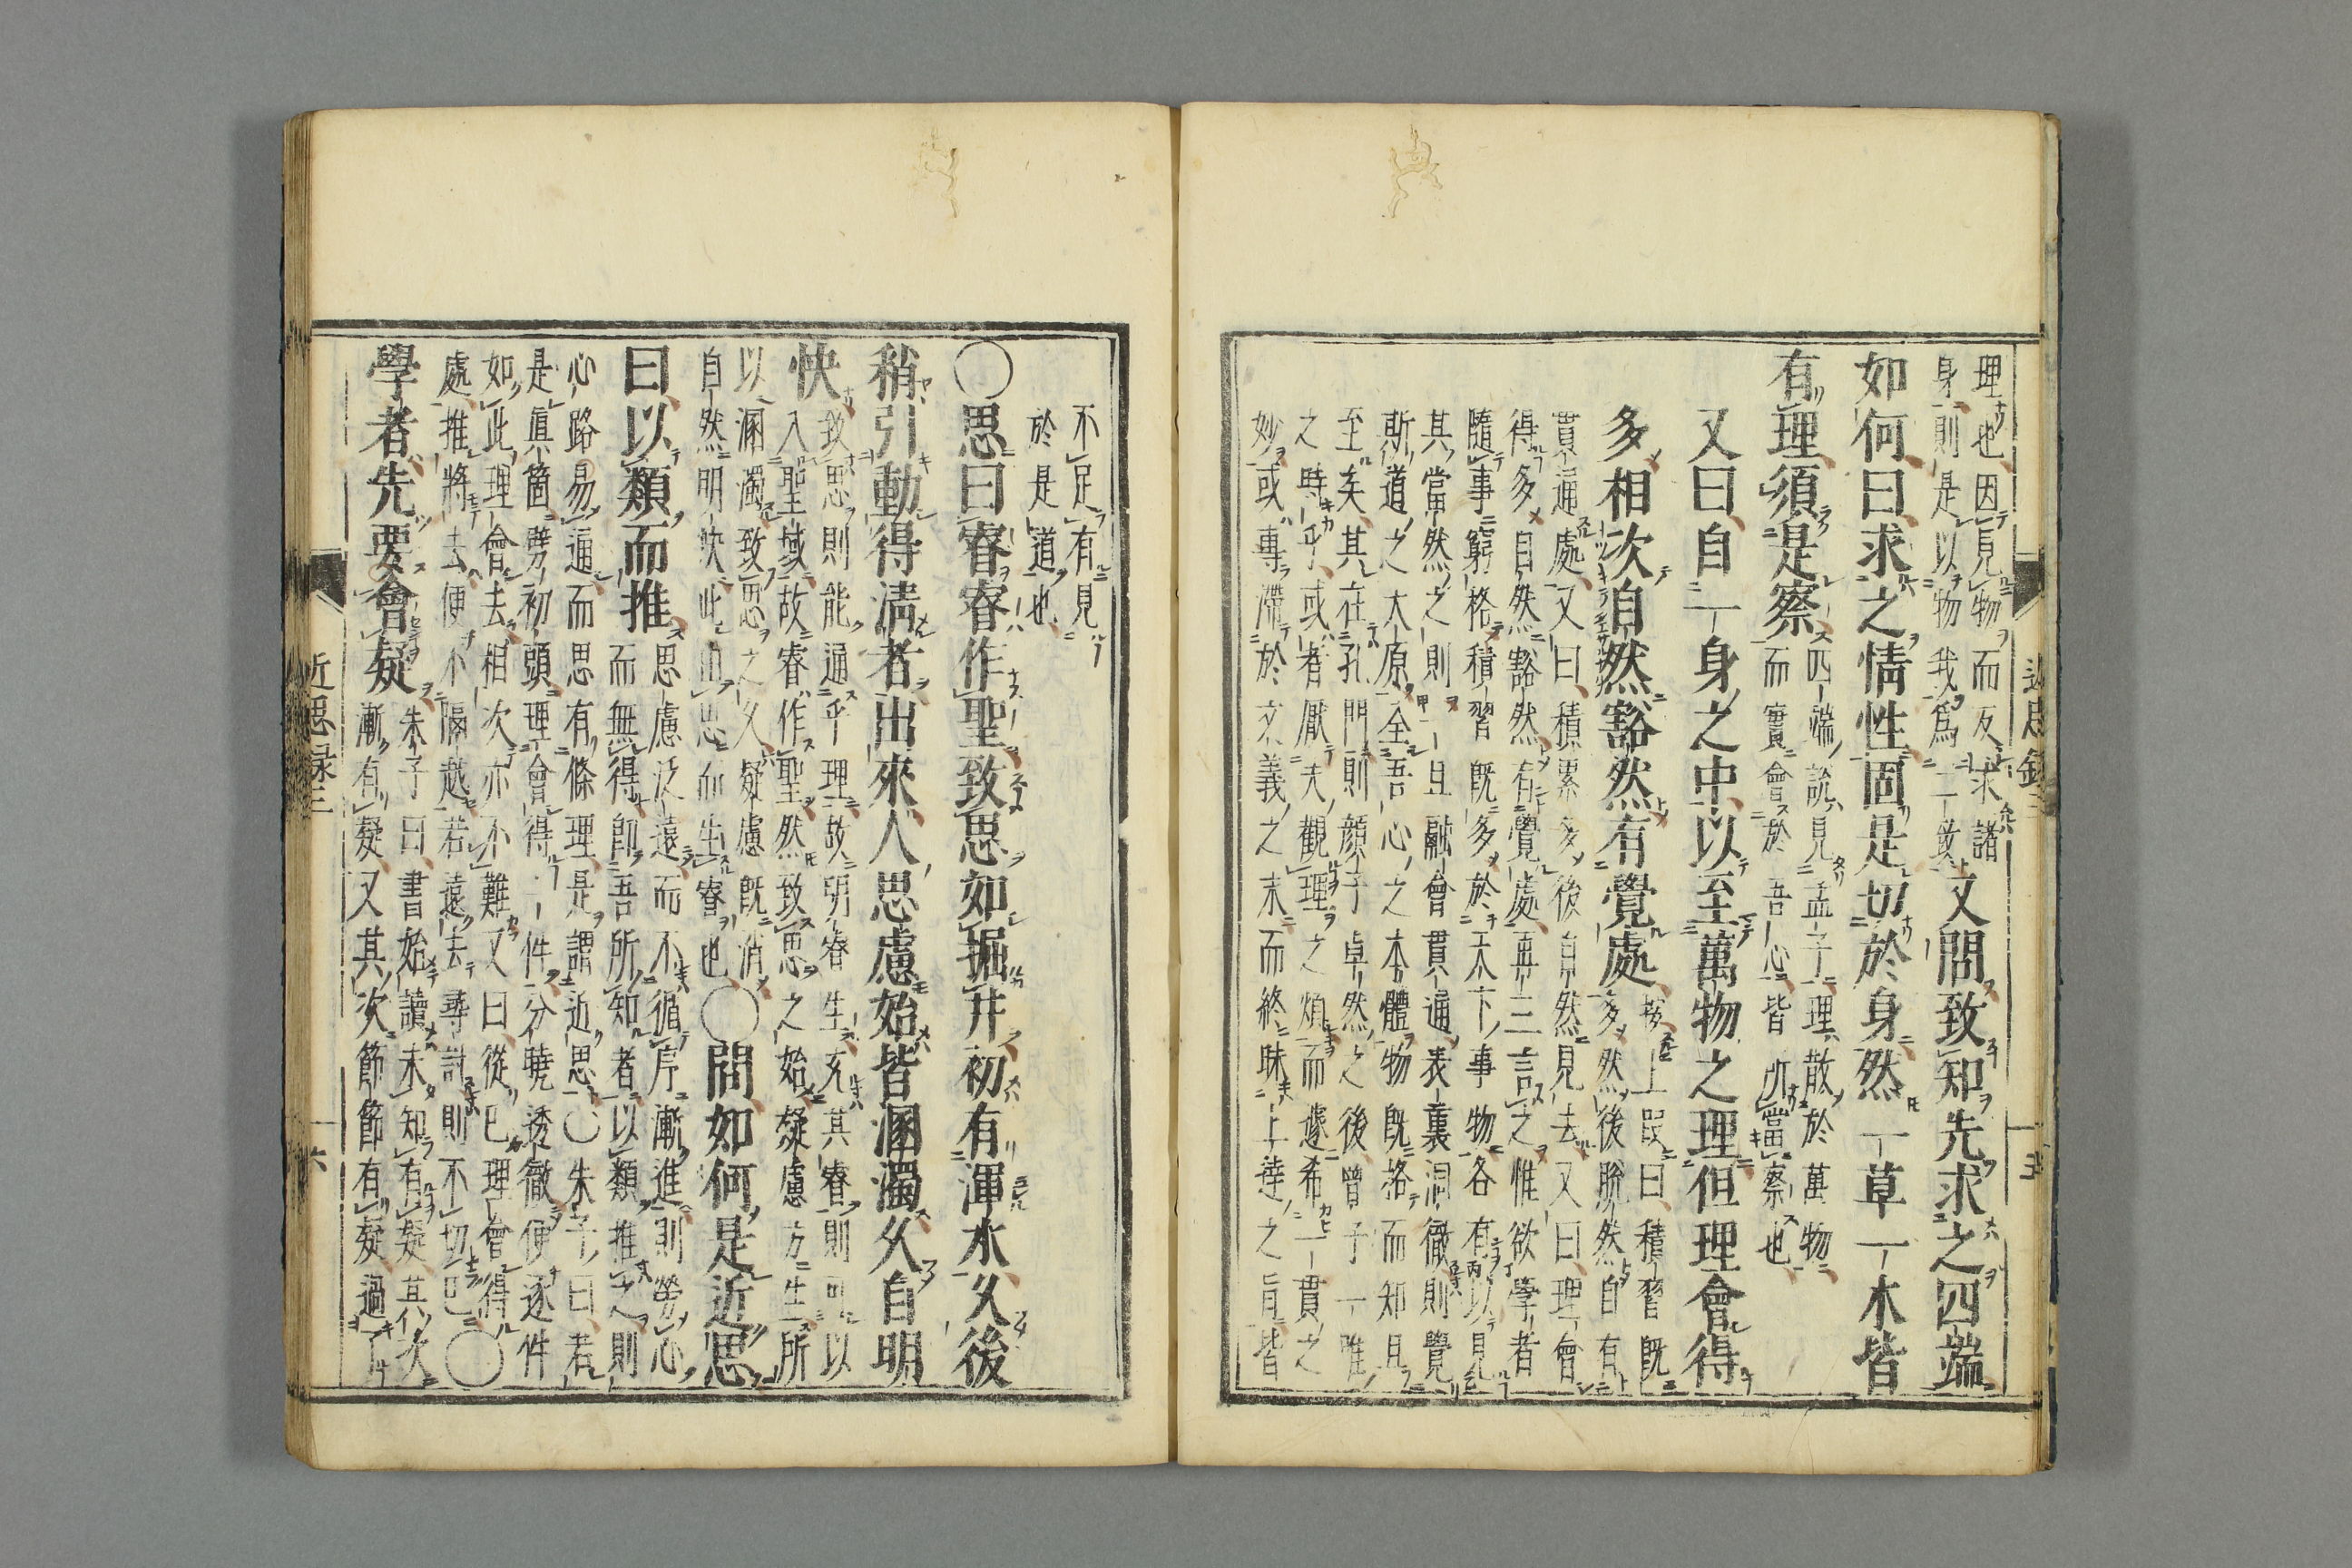 理也因見物而反求諸
身則是以物我爲二致
又問致知先求之四端
如何曰求之情性固是切於身然一草一木皆
有理須是察
四端說見孟子理散於萬物
而實會於吾心皆所當察也
又曰自一身之中以至萬物之理但理會得
多相次自然豁然有覺處
按上段曰積習既
多然後脫然自有
貫通處又曰積累多後自然見去又曰理會
得多自然豁然有覺處再三言之惟欲學者
隨事窮格積習既多於天下事物各有以見
其當然之則一旦融會貫通表裏洞徹則覺
斯道之大原全吾心之本體物既格而知且
至矣其在孔門則顏子卓然之後曾子一唯
之時乎或者厭夫觀理之煩而遽希一貫之
妙或專滯於文義之末而終昧上達之旨皆
不足有見
於是道也
○思曰睿睿作聖致思如掘井初有渾水久後
稍引動得清者出來人思慮始皆溷濁久自明
快
致思則能通乎理故明睿生充其睿則可以
入聖域故睿作聖然致思之始疑慮方生所
以溷濁致思之久疑慮既消
自然明快此由思而生睿也
○問如何是近思
曰以類而推
思慮泛遠而不循序漸進則勞心
而無得即吾所知者以類推之則
心路易通而思有條理是謂近思○朱子曰若
是眞箇劈初頭理會得一件分曉透徹便逐件
如此理會去相次亦不難又曰從已理會得
處推將去便不隔越若遠去尋討則不切己
○
學者先要會疑
朱子曰書始讀未知有疑其次
漸有疑又其次節節有疑過了
近思録三
十六